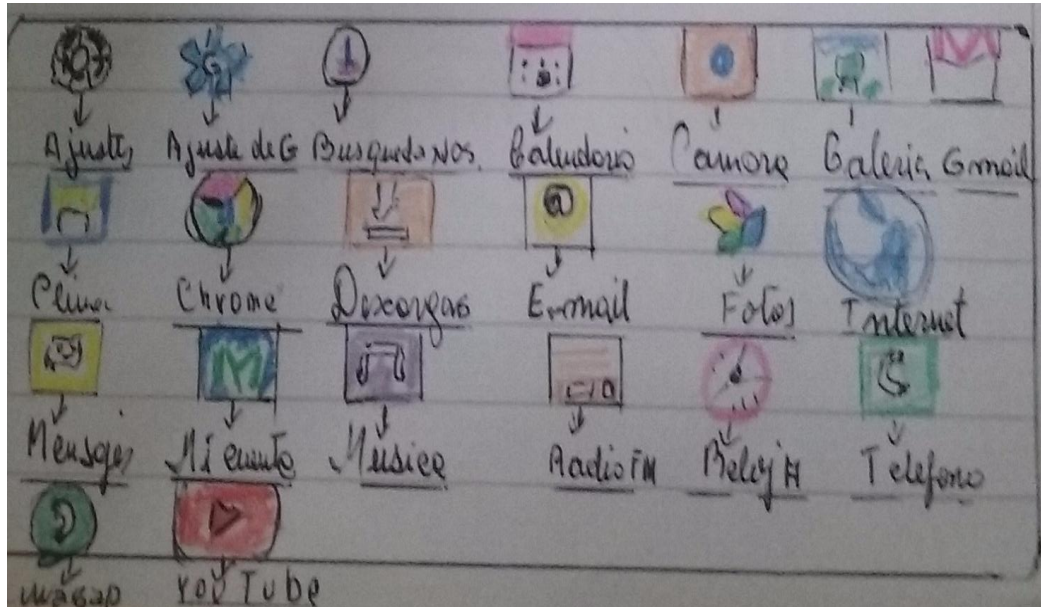 Ajustes Ajuste de G Busqueda Vos. Calendario Camara Galeria Gmail
Clima Chrome Descargas E-mail Fotos Internet
Mensajes Mi cuenta Música Radio FM Reloj H Telefono
wasap YouTube